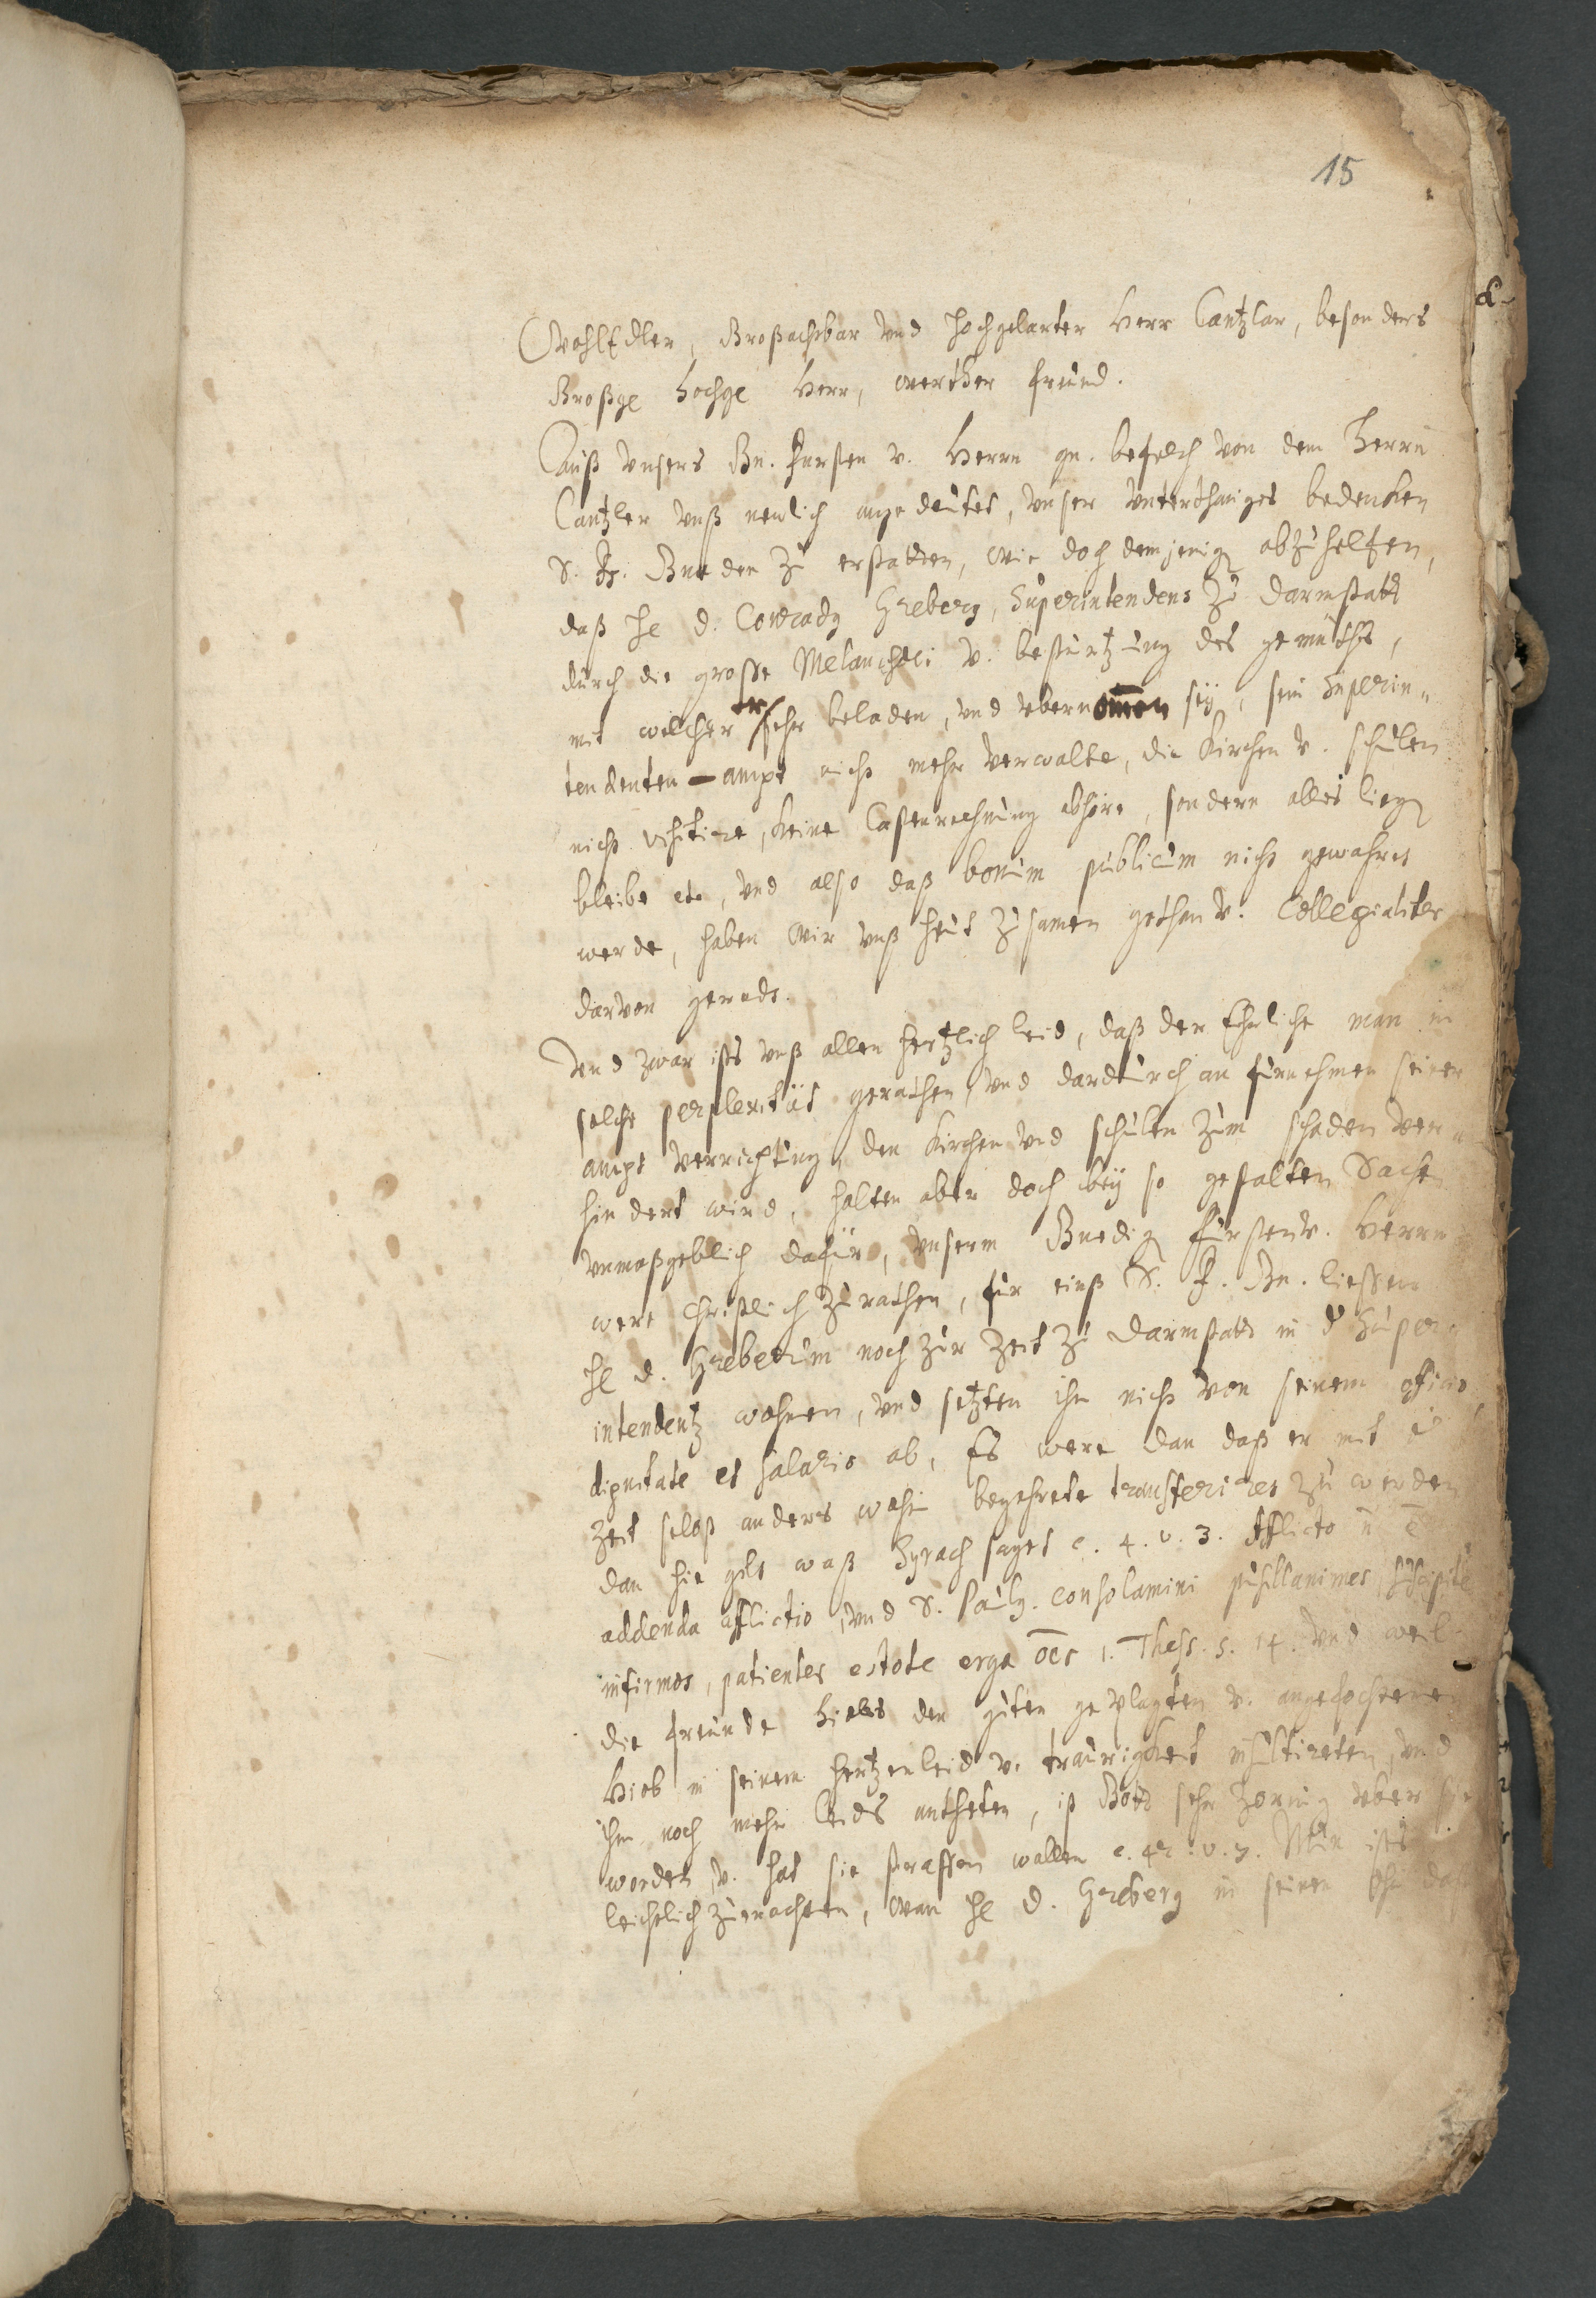 15
WohlEdler, Großachtbar vnd hochgelarter Herr Cantzlar, besonders
Großge hochge Herr, werther freund.
Auß vnsers Gn. Fursten v. Herrn gn. befelch von dem Herrn
Cantzler vnß newlich angedeutet, vnser vnterthäniges bedencken
S. F. Gnaden zu erstatten, wie doch demjenigen abzuhelfen,
daß He D. Conradg Greberg, Superintendens zu Darmstatt
durch die grosse Melancholi v. besturtzung des gemuths,
mit welcher er sehr beladen, vnd vbernommen sey, sein Superin„
tendenten-ampt nicht mehr verwalte, die Kirchen v. schulen
nicht visitire, keine Castenrechnung abhöre, sondern alles liegen
bleibe etc, vnd also daß bonum publicum nicht gewahret
werde, haben wir vnß heut zusamen gethan v. Collegialiter
darvon geredt.
Vnd zwar ists vnß allen hertzlich leid, daß der Ehrliche man in
solche perplexität gerathen, vnd dardurch an furnehmen seiner
ampt verrichtung, den Kirchen vnd schulen zum schaden ver
hindert wird, halten aber doch bey so gestalten Sachen
vnmaßgeblich dafür, vnserm Gnedigen Fursten v. Herrn
were Christlich zu rathen, fur einß S. F. Gn. liessen
He D. Greberum noch zur zeit zu Darmstatt in der Super
intendentz wohnen, vnd setzten ihn nicht von seinem officio
dignitate et salario ab, Es were dan daß er mit
zeit selbst anders wohin begehrete transferiret zu werden
dan hie gilt waß Syrach saget c. 4. v. 3. Afflicto n̄ ē
addenda afflictio, vnd S. Paulg. consolamini pusillanimes, suscipite
infirmos, patientes estote erga ōēs 1. Thess. 5. 14. vnd weil
die freunde Hiobs den guten geplagten v. angefochtenen
Hiob in seinem hertzenleid v. traurigkeit insultireten, vnd
ihm noch mehr leids antheten, ist Gott sehr zornig vber sie
worden, v. hat sie straffen wollen c. 42. v. 7. Nun ists
leichtlich zuerachten, wan He D. Greberg in seinem